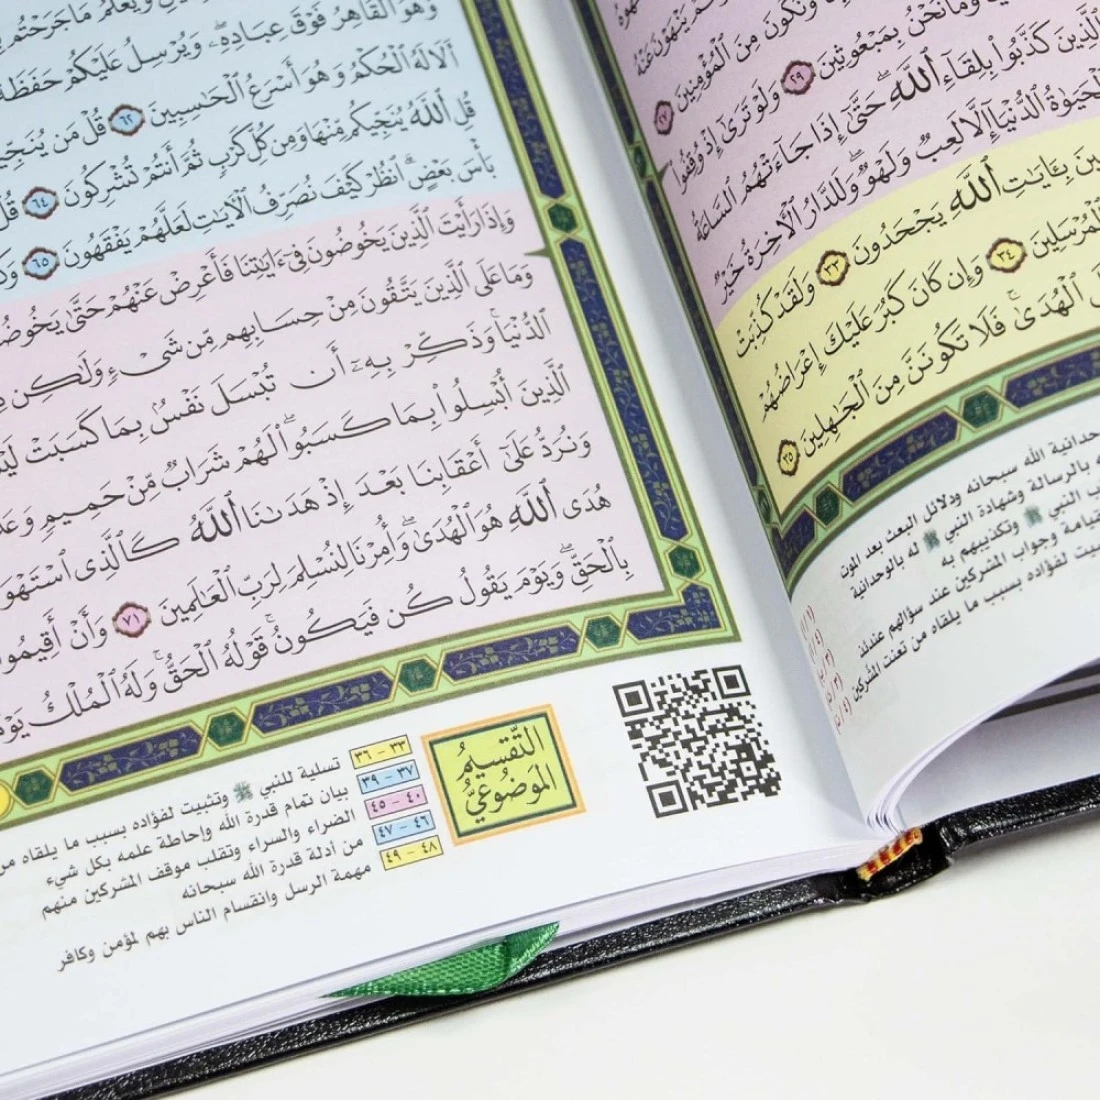 وَهُوَ ٱلْقَاهِرُ فَوْقَ عِبَادِهِۦ وَيُرْسِلُ عَلَيْكُمْ حَفَظَةً
أَلَا لَهُ ٱلْحُكْمُ وَهُوَ أَسْرَعُ ٱلْحَٰسِبِينَ ٦٢ قُلْ مَن
قُلِ ٱللَّهُ يُنَجِّيكُم مِّنْهَا وَمِن كُلِّ كَرْبٍ ثُمَّ أَنتُمْ تُشْرِكُونَ ٦٤ قُلْ
بَأْسَ بَعْضٍ ٱنظُرْ كَيْفَ نُصَرِّفُ ٱلْأٓيَٰتِ لَعَلَّهُمْ يَفْقَهُونَ ٦٥
وَإِذَا رَأَيْتَ ٱلَّذِينَ يَخُوضُونَ فِىٓ ءَايَٰتِنَا فَأَعْرِضْ عَنْهُمْ حَتَّىٰ
وَمَا عَلَى ٱلَّذِينَ يَتَّقُونَ مِنْ حِسَابِهِم مِّن شَىْءٍ وَلَٰكِن
ٱلدُّنْيَا وَذَكِّرْ بِهِۦٓ أَن تُبْسَلَ نَفْسٌۢ بِمَا كَسَبَتْ
ٱلَّذِينَ أُبْسِلُوا۟ بِمَا كَسَبُوا۟ لَهُمْ شَرَابٌ مِّنْ حَمِيمٍ
وَنُرَدُّ عَلَىٰٓ أَعْقَابِنَا بَعْدَ إِذْ هَدَىٰنَا ٱللَّهُ كَٱلَّذِى
هُدَى ٱللَّهِ هُوَ ٱلْهُدَىٰ وَأُمِرْنَا لِنُسْلِمَ لِرَبِّ ٱلْعَٰلَمِينَ ٧١ وَأَنْ
بِٱلْحَقِّ وَيَوْمَ يَقُولُ كُن فَيَكُونُ قَوْلُهُ ٱلْحَقُّ وَلَهُ ٱلْمُلْكُ
التَّقْسِيمُ
المَوْضُوعِيُّ
٣٣ - ٣٦ تسلية للنبي ﷺ وتثبيت لفؤاده بسبب ما يلقاه من
٣٧ - ٣٩ بيان تمام قدرة الله وإحاطة علمه بكل شيء
٤٠ - ٤٥ الضراء والسراء وتقلب موقف المشركين منهم
٤٦ - ٤٧ من أدلة قدرة الله سبحانه
٤٨ - ٤٩ مهمة الرسل وانقسام الناس بهم لمؤمن وكافر
وَنَكُونَ مِنَ ٱلْمُؤْمِنِينَ ٢٧
وَمَا نَحْنُ بِمَبْعُوثِينَ ٢٩ وَلَوْ تَرَىٰٓ إِذْ وُقِفُوا۟
ٱلَّذِينَ كَذَّبُوا۟ بِلِقَآءِ ٱللَّهِ حَتَّىٰٓ إِذَا جَآءَتْهُمُ ٱلسَّاعَةُ
ٱلدُّنْيَآ إِلَّا لَعِبٌ وَلَهْوٌ وَلَلدَّارُ ٱلْأٓخِرَةُ خَيْرٌ
بِـَٔايَٰتِ ٱللَّهِ يَجْحَدُونَ ٣٣ وَلَقَدْ كُذِّبَتْ
ٱلْمُرْسَلِينَ ٣٤ وَإِن كَانَ كَبُرَ عَلَيْكَ إِعْرَاضُهُمْ
ٱلْهُدَىٰ فَلَا تَكُونَنَّ مِنَ ٱلْجَٰهِلِينَ ٣٥
الله سبحانه ودلائل البعث بعد الموت
بالرسالة وشهادة النبي ﷺ له بالوحدانية
النبي ﷺ وتكذيبهم به
وجواب المشركين عند سؤالهم عندئذ
لفؤاده بسبب ما يلقاه من تعنت المشركين